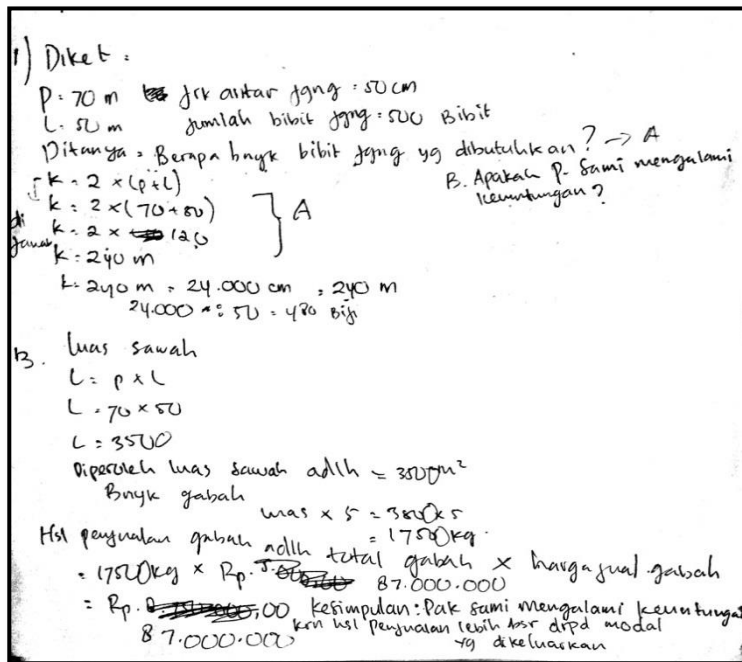 1) Diket :
P : 70 m jrk antar jgng : 50 cm
L : 50 m jumlah bibit jgng : 500 Bibit
Ditanya : Berapa bnyk bibit jgng yg dibutuhkan ? → A
B. Apakah P. Sami mengalami
keuntungan ?
k = 2 × (p+l)
k = 2 × (70+50)
k = 2 × 120
k = 240 m
di jawab
A
k = 240 m = 24.000 cm = 240 m
24.000 : 50 = 480 Biji
B. luas sawah
L = p × l
L = 70 × 50
L = 3500
Diperoleh luas sawah adlh = 3500 m²
Bnyk gabah
luas × 5 = 3500 × 5
= 17500 kg.
Hsl penjualan gabah adlh total gabah × harga jual gabah
= 17500 kg × Rp. 87.000.000
= Rp. 87.000.000
Kesimpulan : Pak Sami mengalami keuntungan
krn hsl penjualan lebih bsr drpd modal
yg dikeluarkan